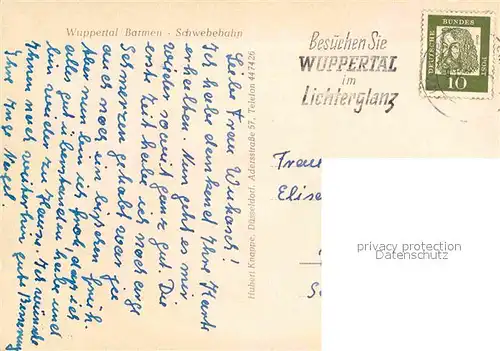 Wuppertal Barmen - Schwebebahn
Liebe Frau
Ich habe dankend Ihre Karte
erhalten. Nun geht es mir
wieder soweit ganz gut. Die
erste Zeit habe ich noch enge
Schmerzen gehabt war ja
auch noch ein bisschen früh.
Aber nun bin ich froh, dass ich
alles gut überstanden habe und
bin wieder zu Hause. Ich wünsche
Ihnen noch weiterhin gute Besserung
Ihre Inge
Hubert Knappe, Düsseldorf, Adersstraße 57, Telefon 447426
Besuchen Sie
WUPPERTAL
im
Lichterglanz
DEUTSCHE BUNDESPOST
10
Frau
Elise
privacy protection
© Delcampe